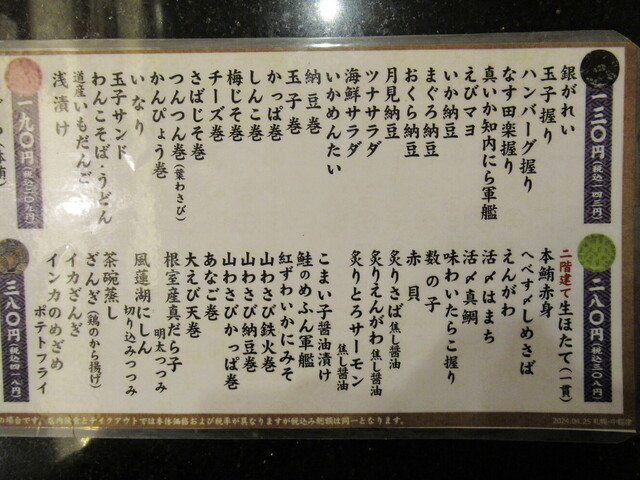 一三〇円(税込一四三円)
銀がれい
玉子握り
ハンバーグ握り
なす田楽握り
真いか知内にら軍艦
えびマヨ
いか納豆
まぐろ納豆
おくら納豆
月見納豆
ツナサラダ
海鮮サラダ
いかめんたい
納豆巻
玉子巻
かっぱ巻
しんこ巻
梅じそ巻
チーズ巻
さばじそ巻
つんつん巻(葉わさび)
かんぴょう巻
いなり
玉子サンド
わんこそば・うどん
道産いもだんご
浅漬け
一九〇円(税込二〇九円)
二八〇円(税込三〇八円)
二階建て生ほたて(一貫)
本鮪赤身
へべす〆しめさば
えんがわ
活〆はまち
活〆真鯛
味わいたらこ握り
数の子
赤貝
炙りさば焦し醤油
炙りえんがわ焦し醤油
炙りとろサーモン焦し醤油
こまい子醤油漬け
鮭のめふん軍艦
紅ずわいかにみそ
山わさび鉄火巻
山わさび納豆巻
山わさびかっぱ巻
あなご巻
大えび天巻
根室産真だら子明太つつみ
風蓮湖にしん切り込みつつみ
茶碗蒸し
ざんぎ(鶏のから揚げ)
イカざんぎ
インカのめざめポテトフライ
三八〇円(税込四一八円)
の場合です。店内飲食とテイクアウトでは本体価格および税率が異なりますが税込み総額は同一となります。
2024.04.25